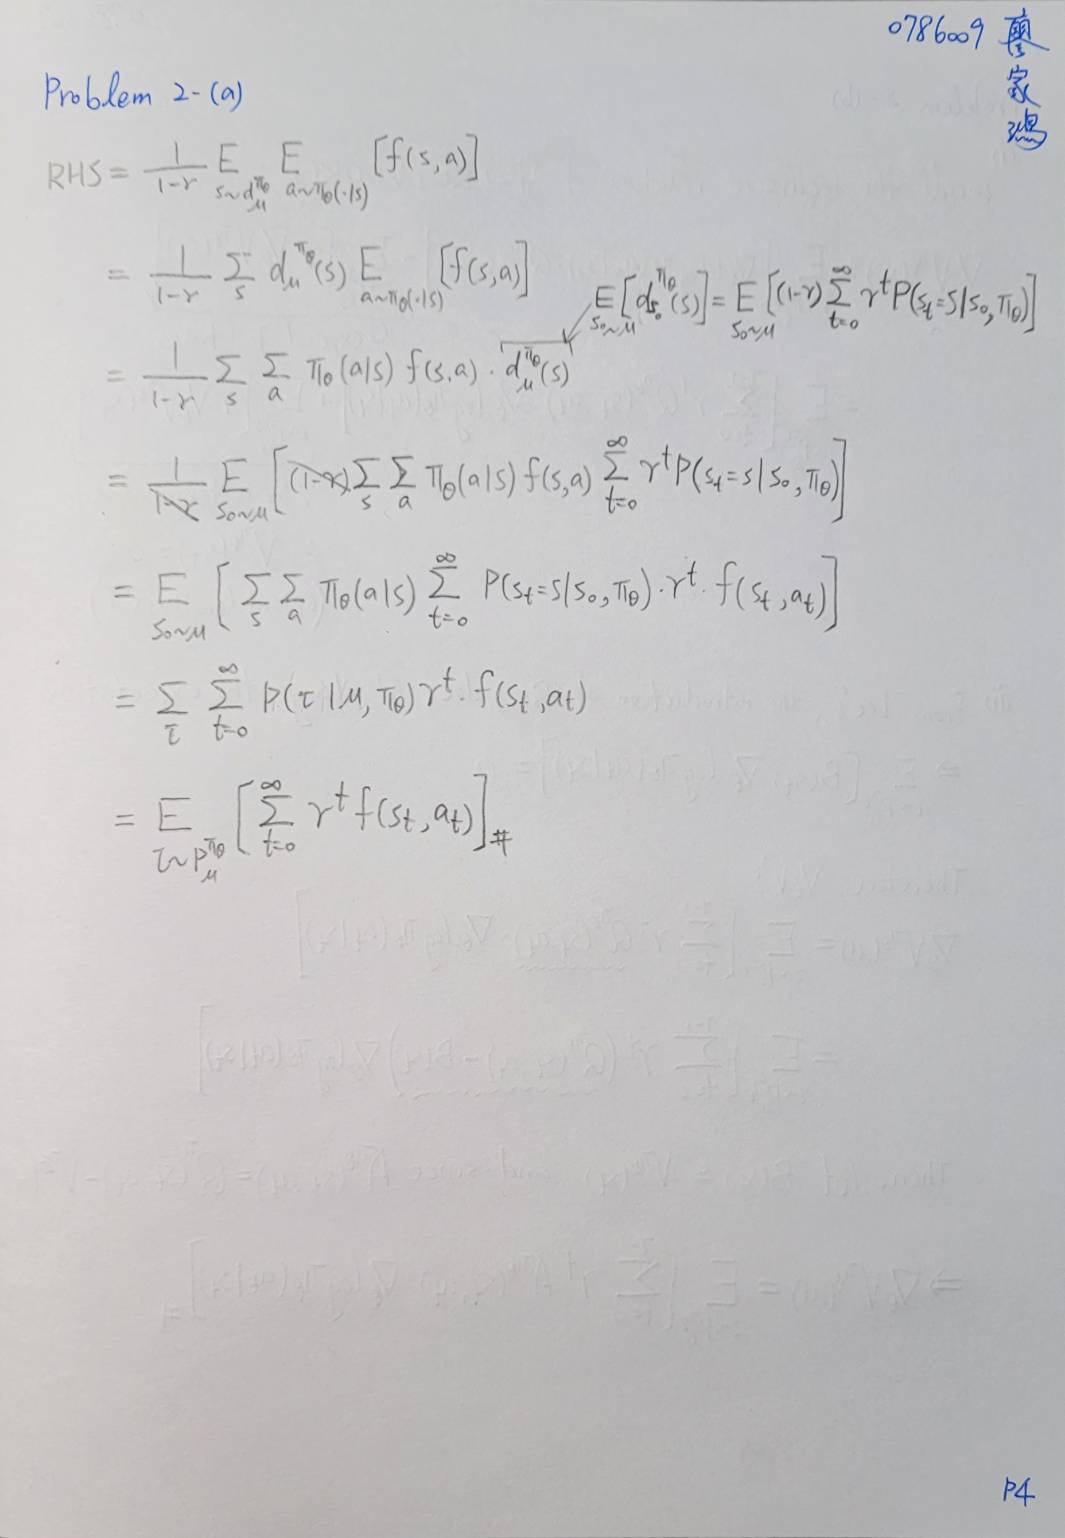 0786009 廖家鴻
Problem 2-(a)
RHS = \frac{1}{1-γ} E_{s∼d_μ^{π_θ}} E_{a∼π_θ(·|s)} [f(s,a)]
= \frac{1}{1-γ} Σ_s d_μ^{π_θ}(s) E_{a∼π_θ(·|s)} [f(s,a)]
E_{s_0∼μ}[d_{s_0}^{π_θ}(s)] = E_{s_0∼μ}[(1-γ) Σ_{t=0}^∞ γ^t P(s_t=s|s_0,π_θ)]
= \frac{1}{1-γ} Σ_s Σ_a π_θ(a|s) f(s,a) · d_μ^{π_θ}(s)
= \frac{1}{1-γ} E_{s_0∼μ} [(1-γ) Σ_s Σ_a π_θ(a|s) f(s,a) Σ_{t=0}^∞ γ^t P(s_t=s|s_0,π_θ)]
= E_{s_0∼μ} [Σ_s Σ_a π_θ(a|s) Σ_{t=0}^∞ P(s_t=s|s_0,π_θ)·γ^t· f(s_t,a_t)]
= Σ_τ Σ_{t=0}^∞ P(τ|μ,π_θ) γ^t· f(s_t,a_t)
= E_{τ∼P_μ^{π_θ}} [Σ_{t=0}^∞ γ^t f(s_t,a_t)]_#
P4